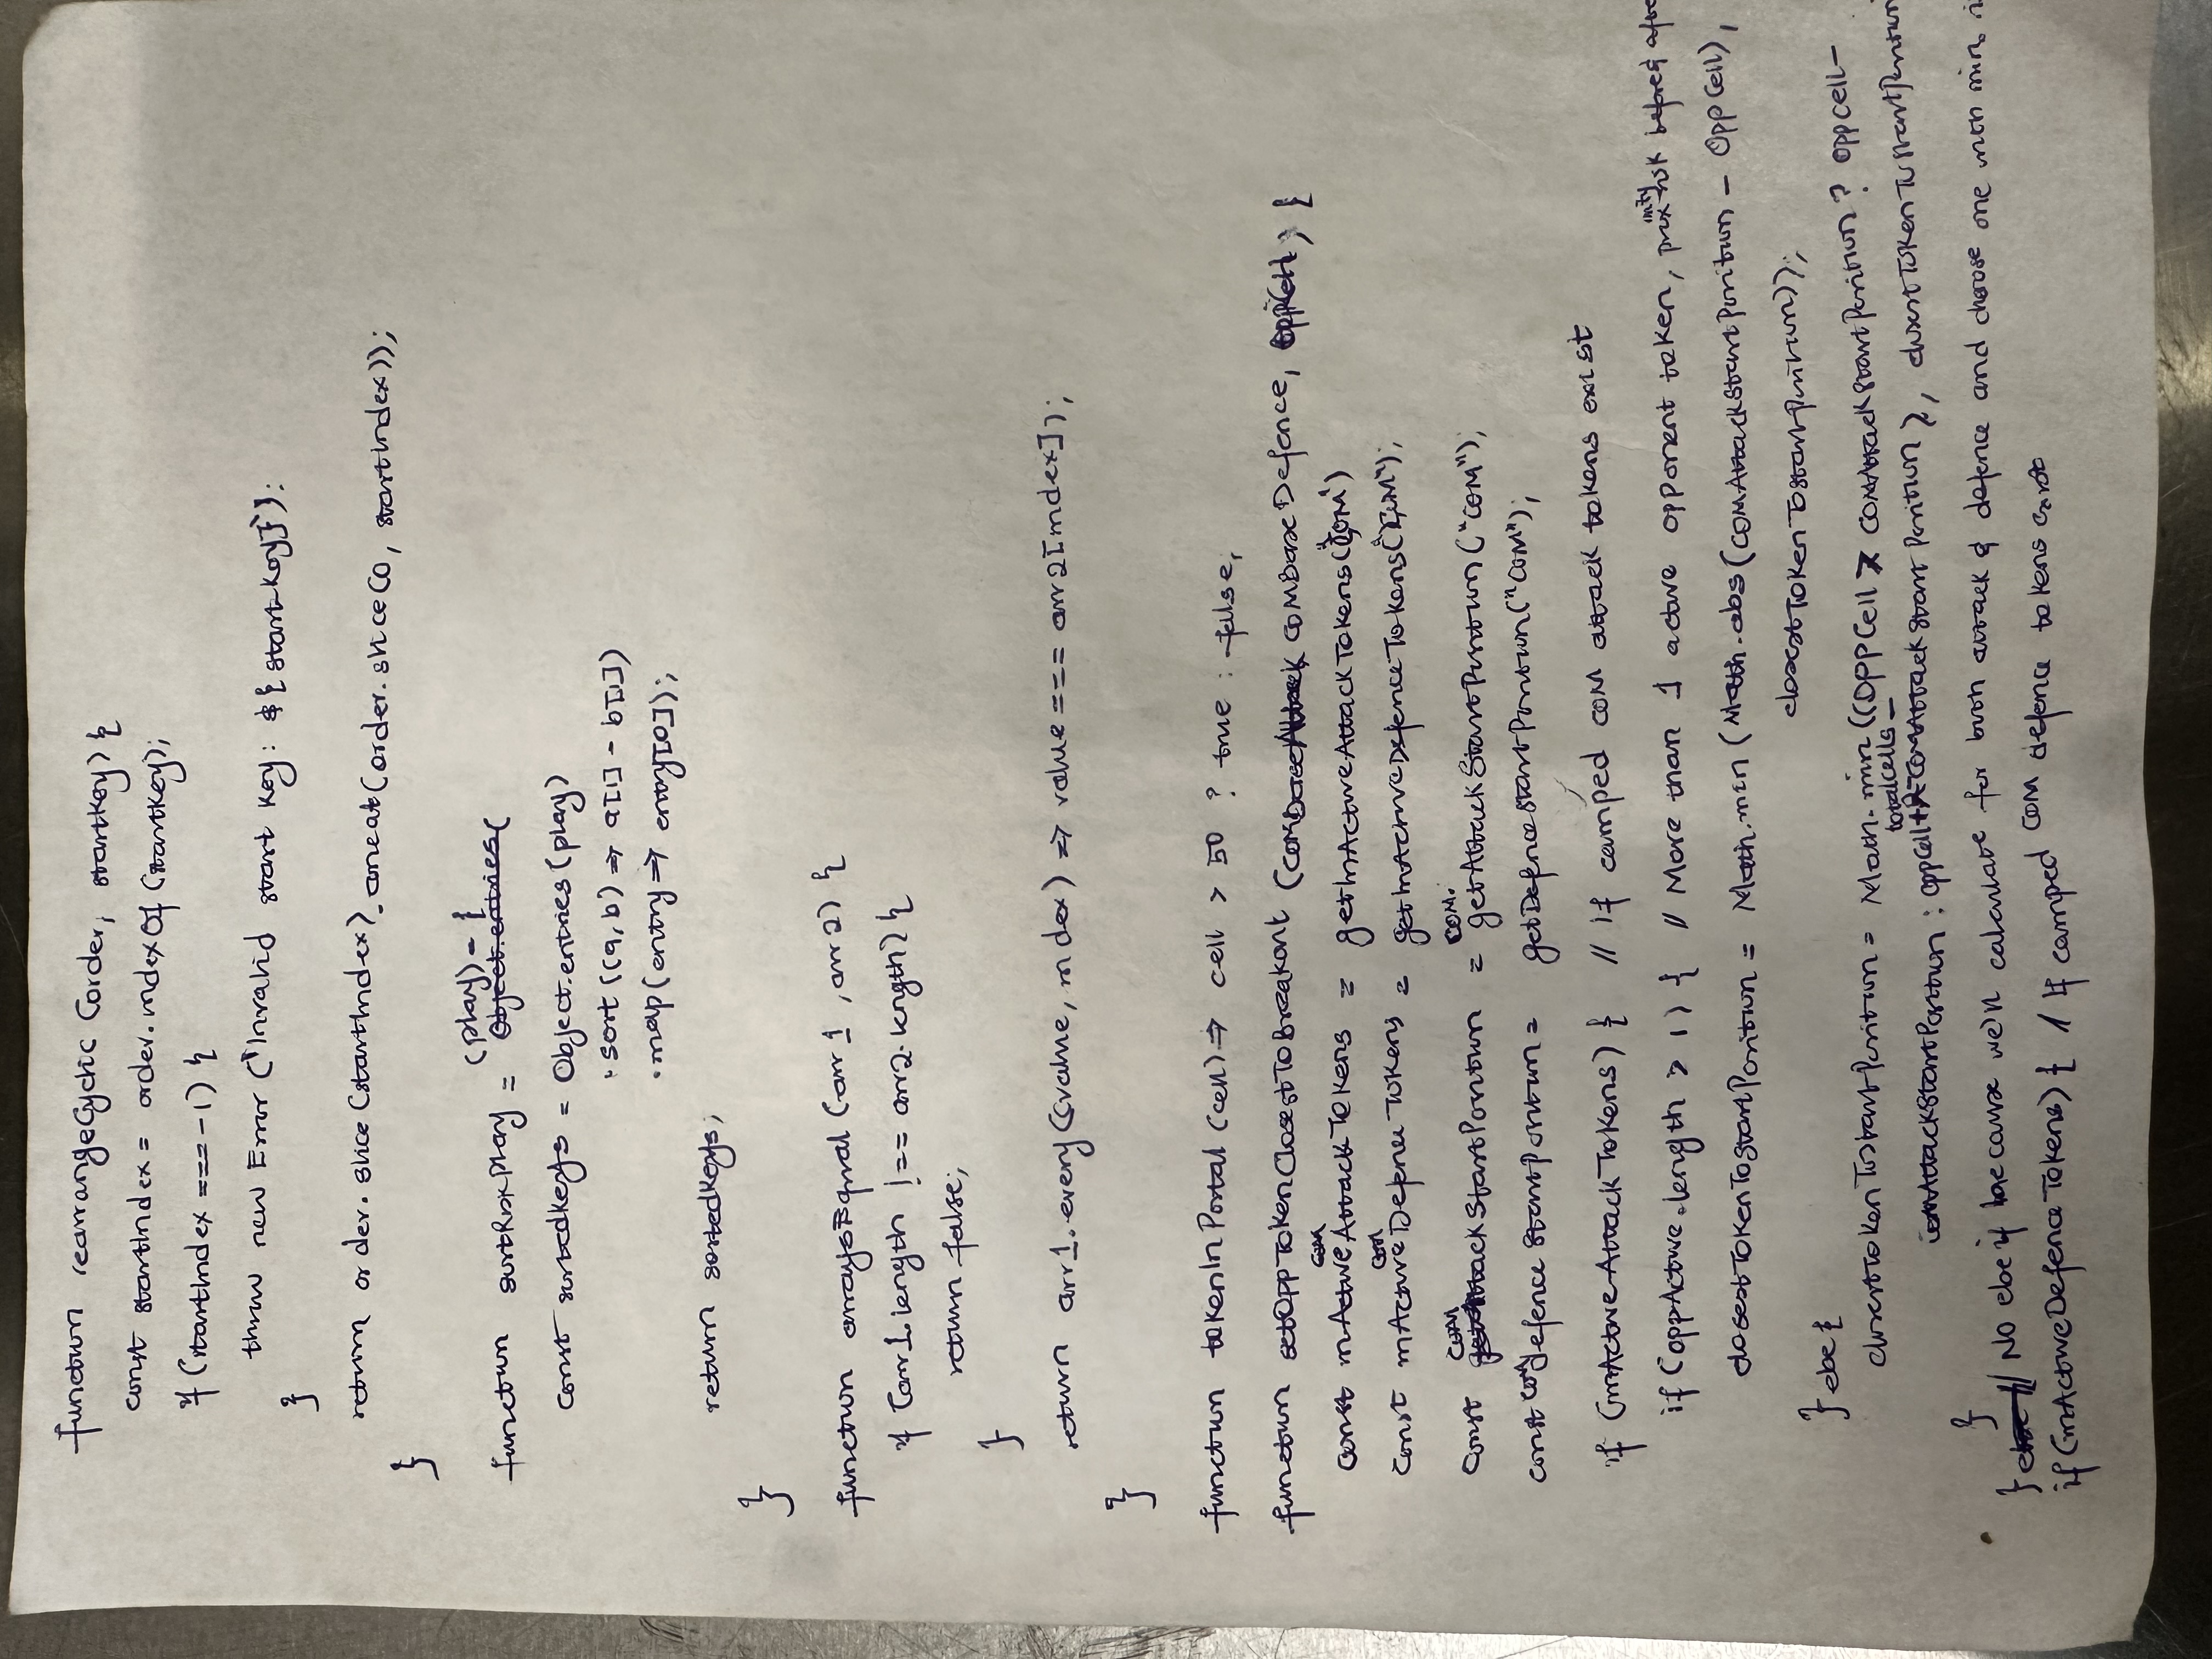 function rearrangeCyclic (order, startKey) {
const startIndex = order.indexOf (startKey);
if (startIndex === -1) {
throw new Error (`Invalid start key: ${startKey}`);
}
return order.slice (startIndex).concat(order.slice(0, startIndex));
}
(play) - {
function sortRiskPlay = Object.entries(
const sortedKeys = Object.entries(play)
.sort ((a, b) => a[1] - b[1])
.map(entry => entry[0]);
return sortedKeys;
}
function arraysEqual (arr1, arr2) {
if (arr1.length !== arr2.length) {
return false;
}
return arr1.every((value, index) => value === arr2[index]);
}
function tokenInPortal (cell) => cell > 50 ? true : false,
function setOppTokenClosestToBreakout (COMBaseAttack COMBaseDefence, OppCell) {
COM
const inActiveAttackTokens = getInActiveAttackTokens("COM")
COM
const inActiveDefenceTokens = getInActiveDefenceTokens("COM");
COM COM.
const getAttackStartPosition = getAttackStartPosition("COM");
const COM defenceStartPosition = getDefenceStartPosition("COM");
if (inActiveAttackTokens) { // If camped COM attack tokens exist
if (oppActive.length > 1) { // More than 1 active opponent token, proximity risk before & after
closestTokenToStartPosition = Math.min (Math.abs(COMAttackStartPosition - OppCell),
closestTokenToStartPosition));
} else {
closestTokenToStartPosition = Math.min ((OppCell > COMAttackStartPosition ? oppCell-
totalcells -
COMAttackStartPosition : oppCell + COMAttackStartPosition), closestTokenToStartPosition
}
} else // No else if because we'll calculate for both attack & defence and choose one with min.
if (inActiveDefenceTokens) { / If camped COM defence tokens exist